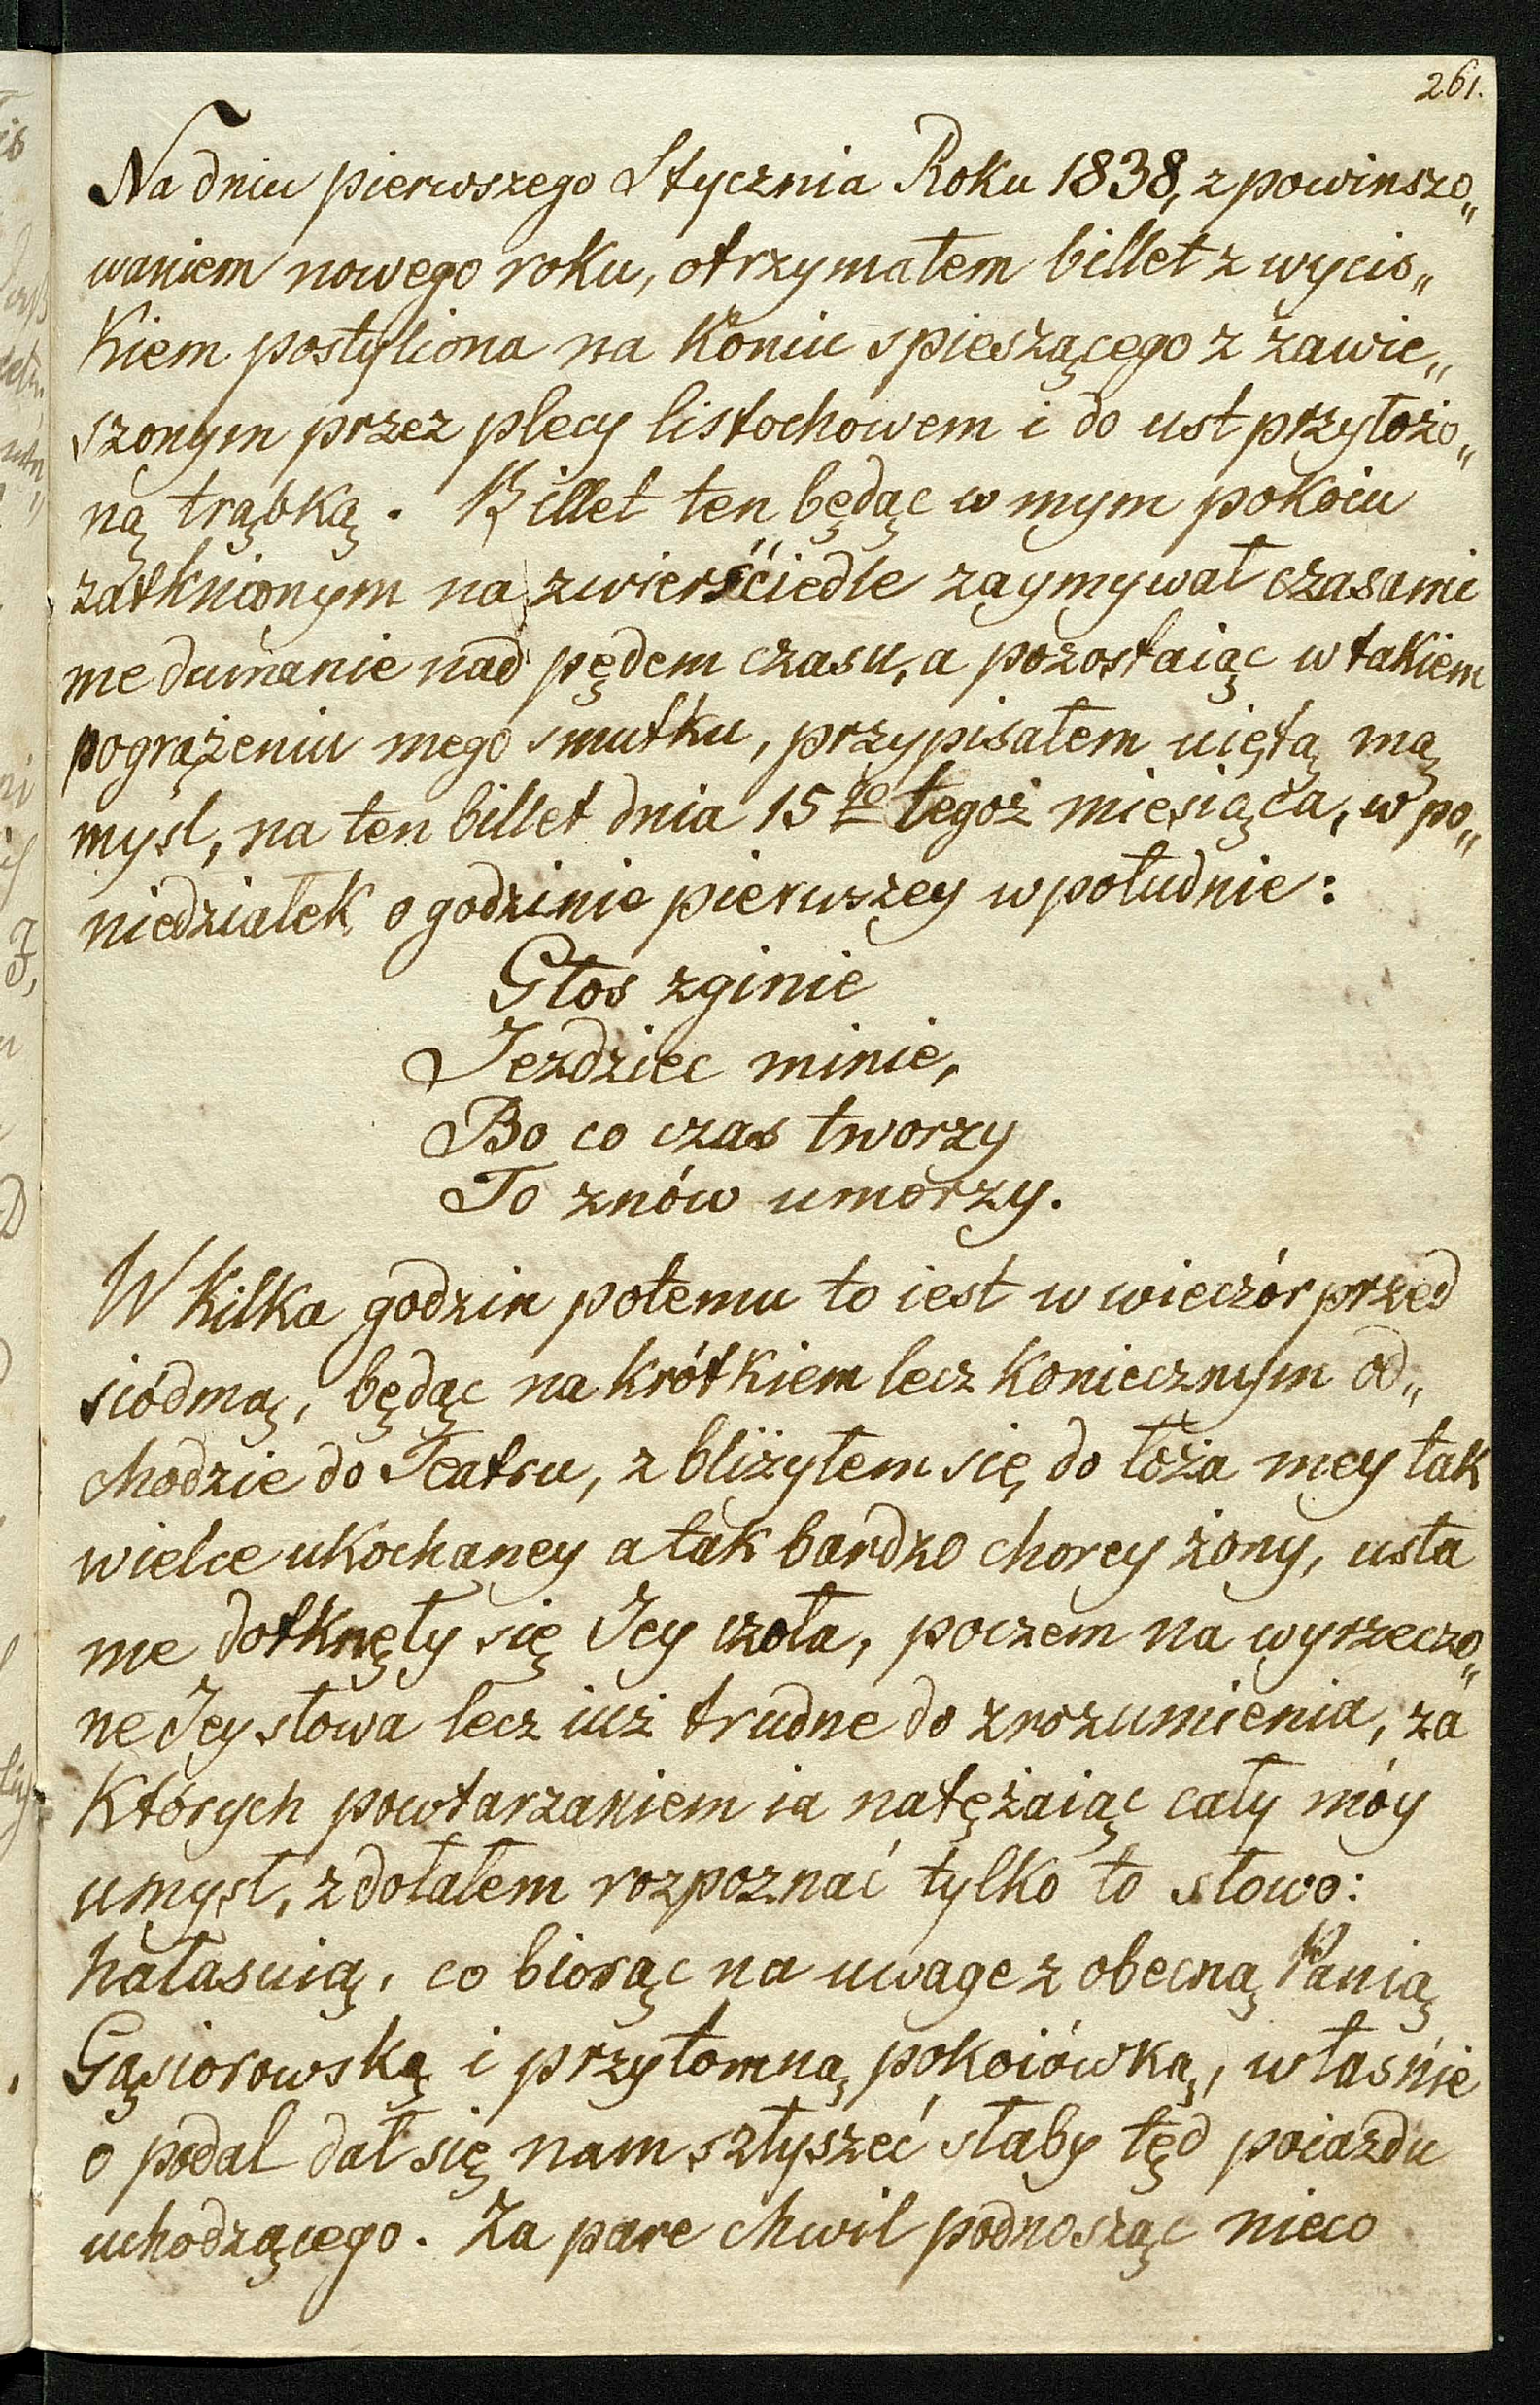 261.
Na dniu pierwszego Stycznia Roku 1838, z powinszo„
waniem nowego roku, otrzymałem billet z wycis„
kiem postyliona na koniu spieszącego z zawie„
szonym przez plecy listochowem i do ust przyłożo„
ną trąbką. Billet ten będąc w mym pokoiu
zatknionym na zwierściedle zaymywał czasami
me dumanie nad pędem czasu, a pozostaiąc w takiem
pogrążeniu mego smutku, przypisałem uiętą mą
mysl, na ten billet dnia 15go tegoż miesiąca, w po„
niedziałek o godzinie pierwszey w południe:
Głos zginie
Jezdziec minie,
Bo co czas tworzy
To znów umorzy.
W kilka godzin potemu to iest w wieczór przed
siódmą, będąc na krótkiem lecz koniecznym od„
chodzie do Teatru, zbliżyłem się do łoża mey tak
wielce ukochaney a tak bardzo chorey żony, usta
me dotknęły się Jey czoła, poczem na wyrzeczo„
ne Jey słowa lecz iuż trudne do zrozumienia, za
których powtarzaniem ia natężaiąc cały móy
umysł, zdołałem rozpoznać tylko to słowo:
hałasuią, co biorąc na uwage z obecną Panią
Gąsiorowską i przytomną pokoiówką, właśnie
o podal dał się nam szłyszeć słaby tęd poiazdu
uchodzącego. Za pare chwil podnosząc nieco